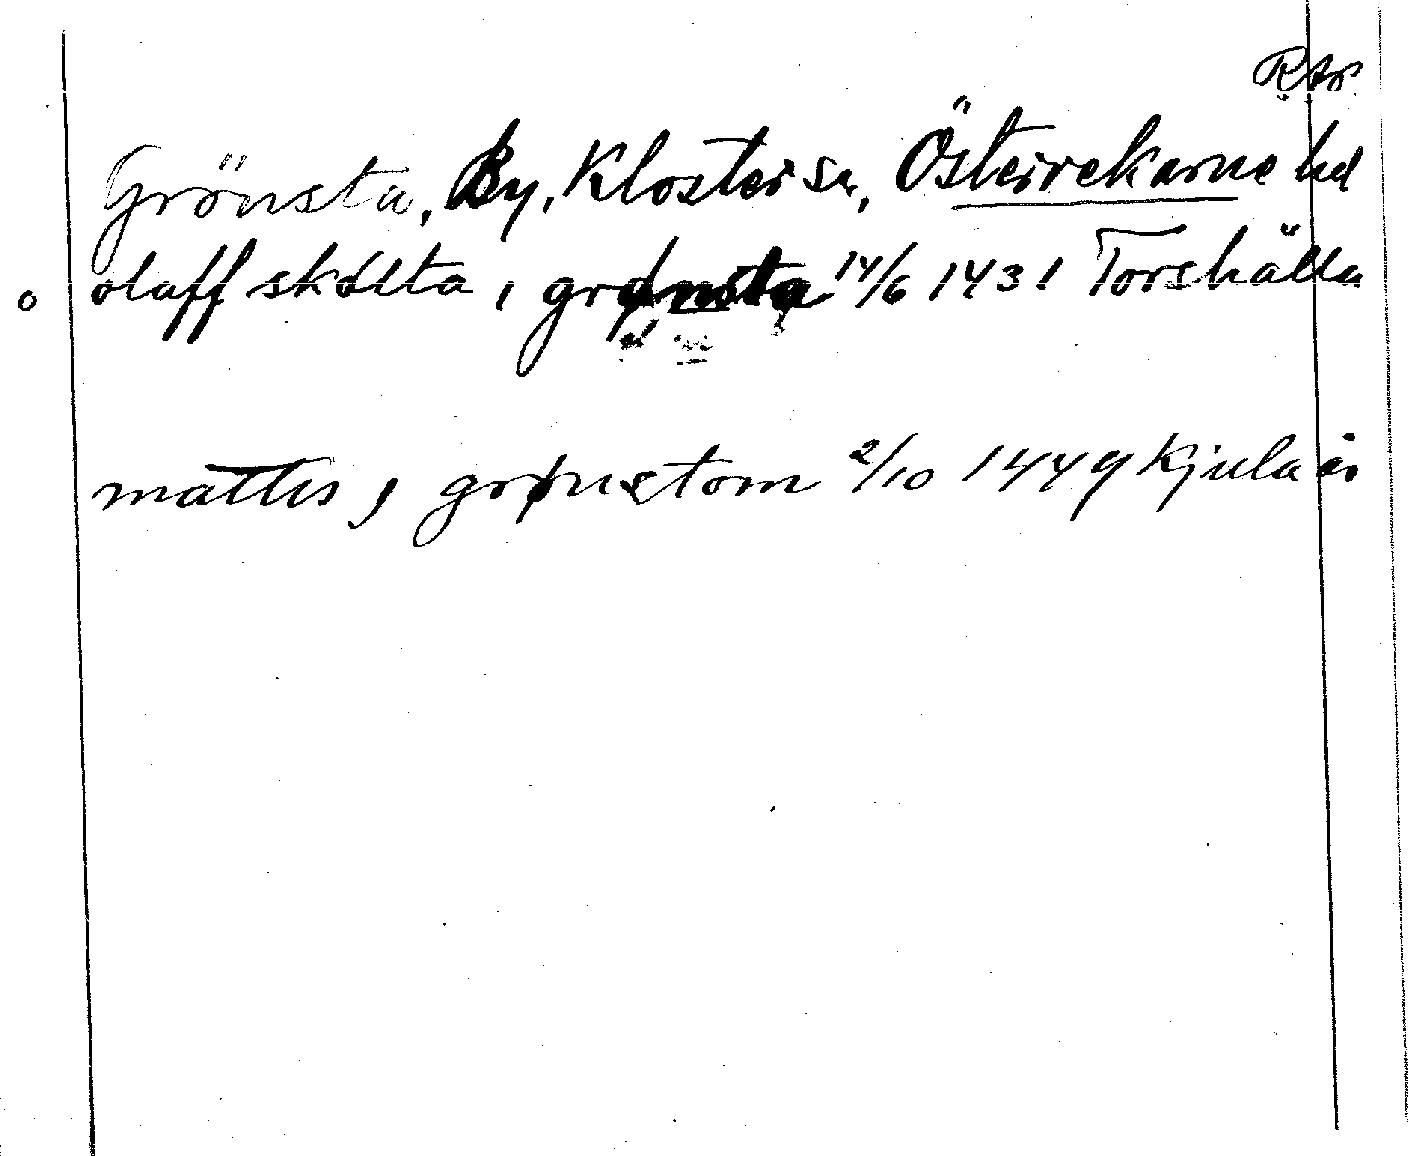 RAp.
Grönsta, By, Kloster sn, Österrekarne hd
o olaff skølta, i grønsta 14/6 1431 Torshälla
mattis, i grønstom 2/10 1449 Kjula ör